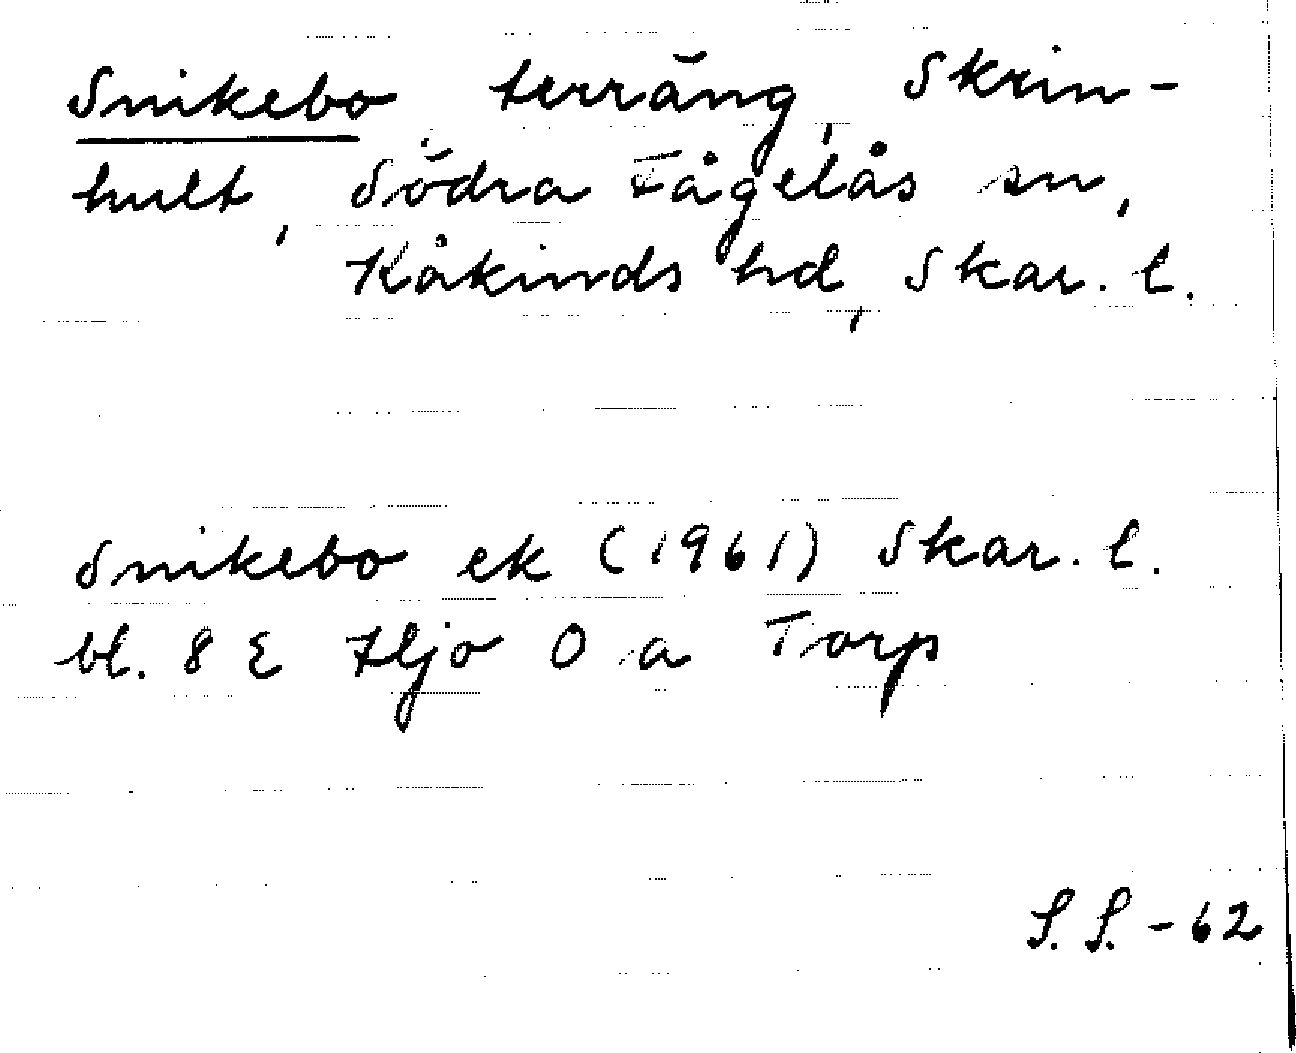 Snikebo terräng, Skrin-
hult, Södra Fågelås sn,
Kåkinds hd, Skar. l.
Snikebo ek (1961) Skar. l.
bl. 8 E Hjo O a Torp
S. S. - 62